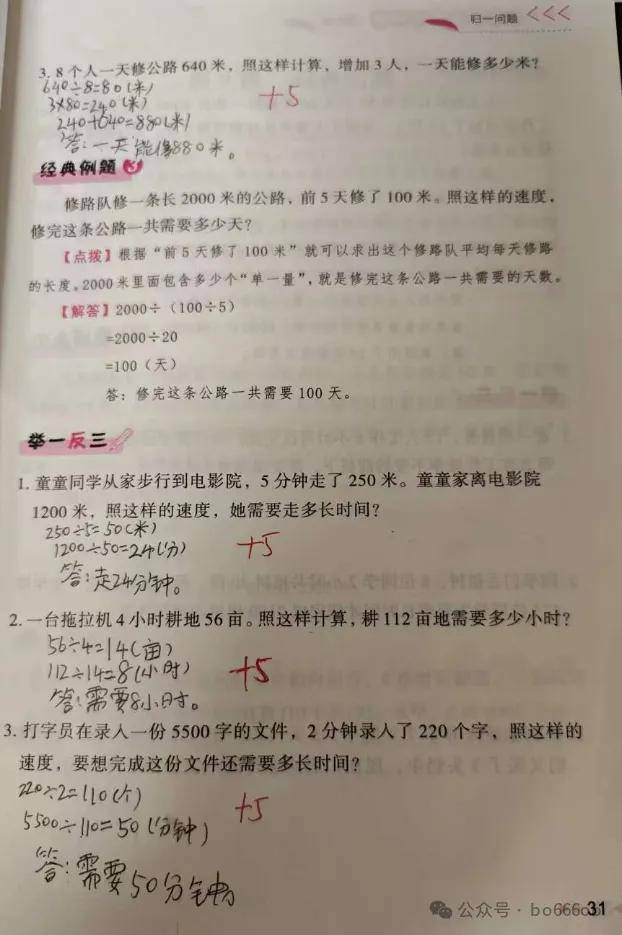 归一问题 <<<
3. 8个人一天修公路640米，照这样计算，增加3人，一天能修多少米？
640÷8=80(米)
3×80=240(米)
+5
240+640=880(米)
答:一天能修880米。
经典例题 3
修路队修一条长2000米的公路，前5天修了100米。照这样的速度，
修完这条公路一共需要多少天？
【点拨】根据“前5天修了100米”就可以求出这个修路队平均每天修路
的长度。2000米里面包含多少个“单一量”，就是修完这条公路一共需要的天数。
【解答】2000÷（100÷5）
=2000÷20
=100（天）
答：修完这条公路一共需要100天。
举一反三
1. 童童同学从家步行到电影院，5分钟走了250米。童童家离电影院
1200米，照这样的速度，她需要走多长时间？
250÷5=50(米)
1200÷50=24(分)
+5
答:走24分钟。
2. 一台拖拉机4小时耕地56亩。照这样计算，耕112亩地需要多少小时？
56÷4=14(亩)
112÷14=8(小时)
+5
答:需要8小时。
3. 打字员在录入一份5500字的文件，2分钟录入了220个字，照这样的
速度，要想完成这份文件还需要多长时间？
220÷2=110(个)
+5
5500÷110=50(分钟)
答:需要50分钟。
公众号·bo666ob
31